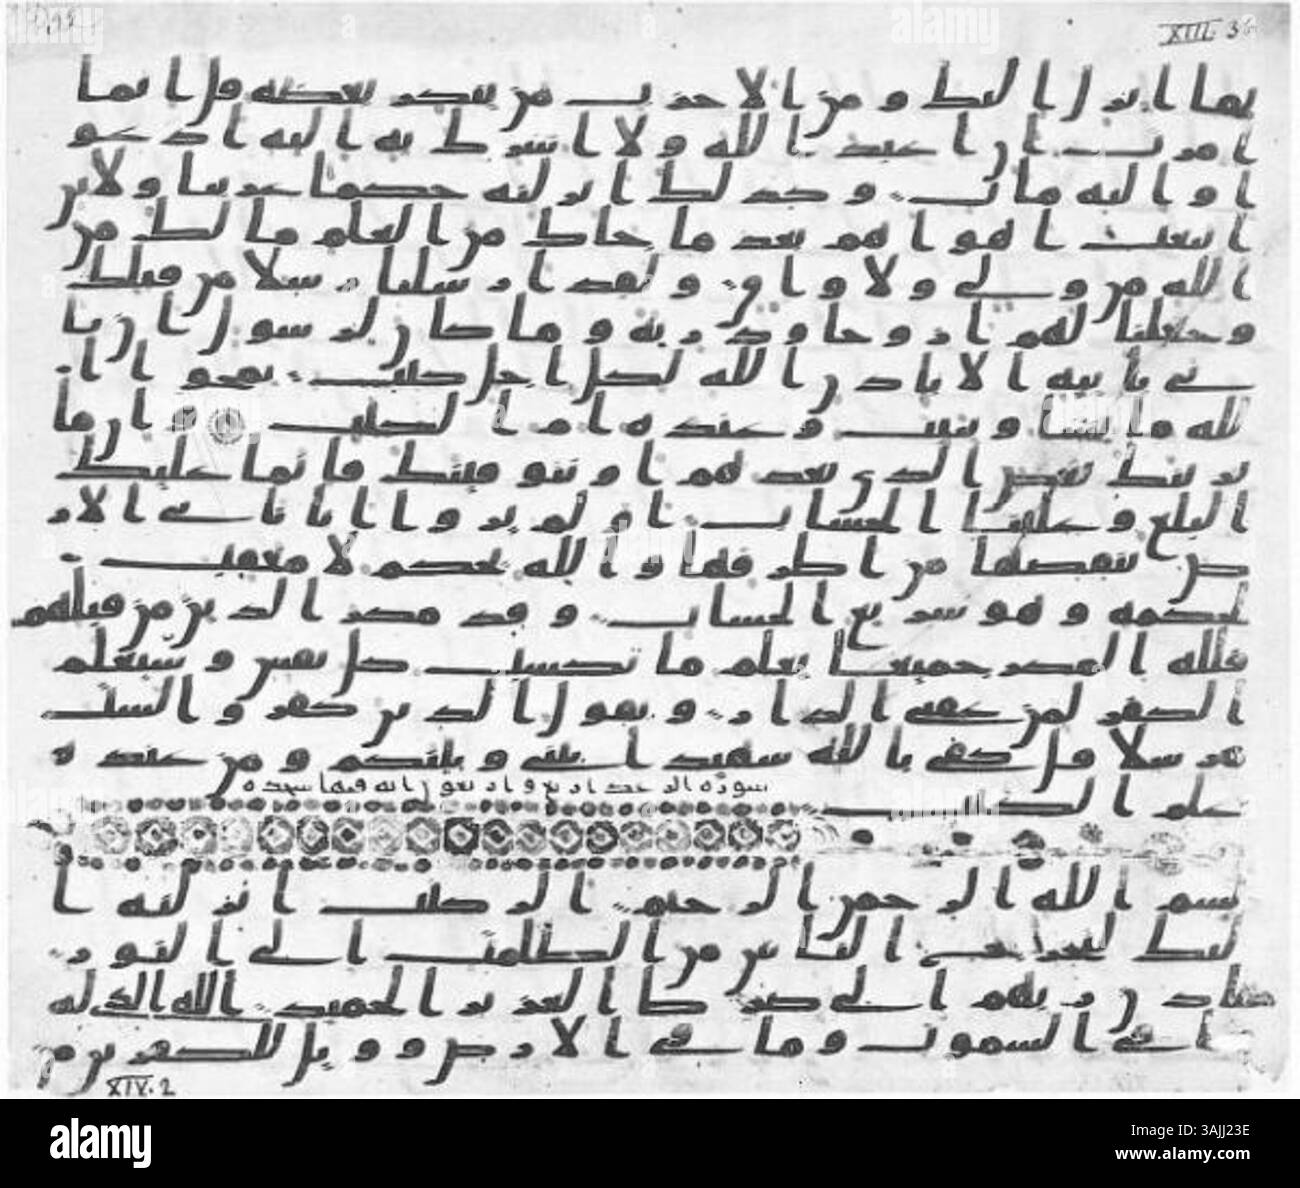 XIII. 36
بما انزل اليك و من الاحزب من ينكر بعضه قل انما
امرت ان اعبد الله ولا اشرك به اليه ادعو
ا و اليه ماب وكذلك انزلنه حكما عربيا ولين
اتبعت اهواهم بعد ما جاك من العلم ما لك من
الله من ولي ولا واق ولقد ارسلنا رسلا من قبلك
وجعلنا لهم ازوجا وذرية وما كان لرسول ان يا
تي باية الا باذن الله لكل اجل كتب يمحوا ا
لله ما يشا ويثبت وعنده ام الكتب وان ما
نرينك بعض الذي نعدهم او نتوفينك فانما عليك
البلغ وعلينا الحساب او لم يروا انا ناتي الار
ض ننقصها من اطرفها والله يحكم لا معقب
لحكمه وهو سريع الحساب وقد مكر الذين من قبلهم
فلله المكر جميعا يعلم ما تكسب كل نفس وسيعلم
الكفر لمن عقبى الدار ويقول الذين كفروا لست
مرسلا قل كفى بالله شهيدا بيني وبينكم ومن عنده
سورة الرعد اربعون اية فيها سجدة
علم الكتب
بسم الله الرحمن الرحيم الر كتب انزلنه ا
ليك لتخرج الناس من الظلمت الى النور
باذن ربهم الى صرط العزيز الحميد الله الذي له
ما في السموت وما في الارض وويل للكفرين من
XIV. 2
alamy
Image ID: 3AJJ23E
www.alamy.com